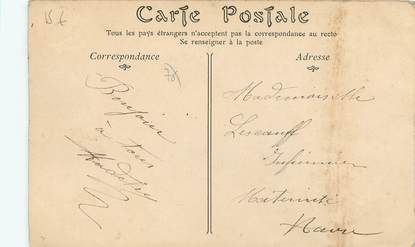 15 €
Carte Postale
Tous les pays étrangers n'acceptent pas la correspondance au recto
Se renseigner à la poste
Correspondance
Adresse
Bonjour
à tous
Mademoiselle
Maternité
Havre